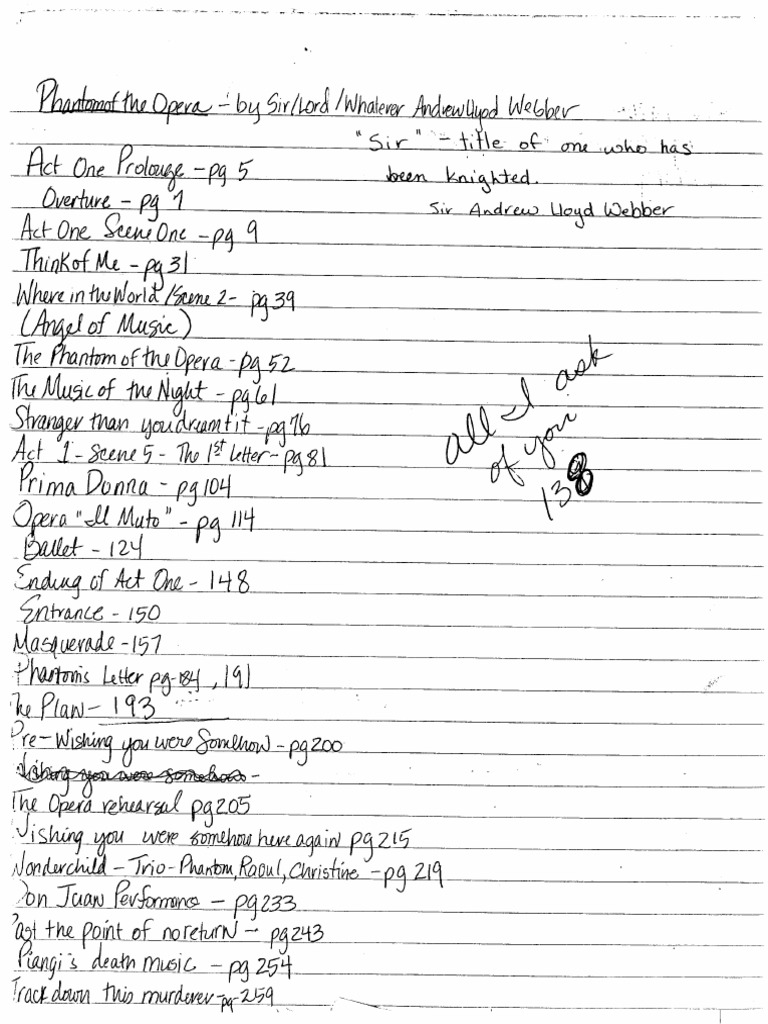 Phantom of the Opera - by Sir/Lord/Whatever Andrew Llyod Webber
"Sir" - title of one who has
been knighted.
Sir Andrew Lloyd Webber
Act One Prolouge - pg 5
Overture - pg 7
Act One Scene One - pg 9
Think of Me - pg 31
Where in the World/Scene 2 - pg 39
(Angel of Music)
The Phantom of the Opera - pg 52
The Music of the Night - pg 61
Stranger than you dreamt it - pg 76
Act 1 - Scene 5 - The 1st Letter - pg 81
Prima Donna - pg 104
Opera "Il Muto" - pg 114
Ballet - 124
all I ask
of you
138
Ending of Act One - 148
Entrance - 150
Masquerade - 157
Phantom's Letter pg 184, 191
he Plan - 193
Pre-Wishing you were Somehow - pg 200
Wishing you were somehow -
The Opera rehearsal pg 205
Wishing you were somehow here again pg 215
Wonderchild - Trio - Phantom, Raoul, Christine - pg 219
Don Juan Performance - pg 233
Past the point of no return - pg 243
Piangi's death music - pg 254
Track down this murderer - pg - 259